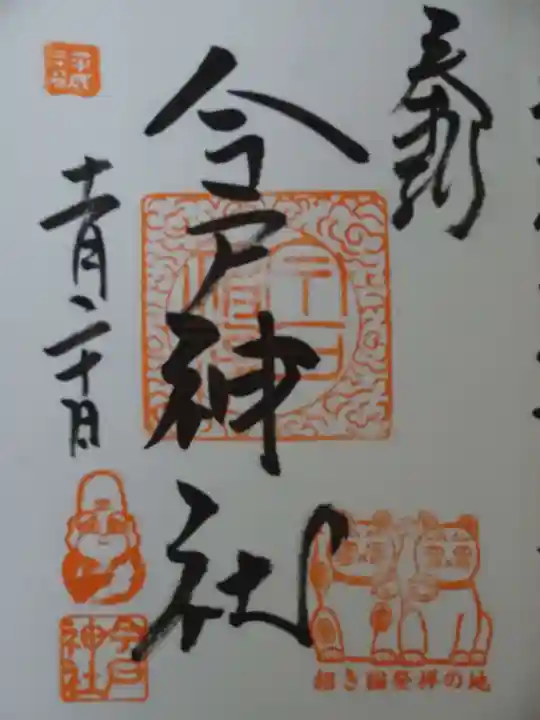 奉拝
今戸神社
十一月二十日
今戸
神社
招き猫発祥の地